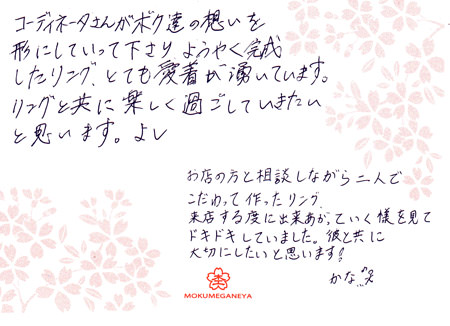 コーディネータさんがボク達の想いを
形にしていって下さり ようやく完成
したリング、とても愛着が湧いています。
リングと共に楽しく過ごしていきたい
と思います。よし
お店の方と相談しながら二人で
こだわって作ったリング。
来店する度に出来あがっていく様を見て
ドキドキしていました。彼と共に
大切にしたいと思います!
かな
MOKUMEGANEYA